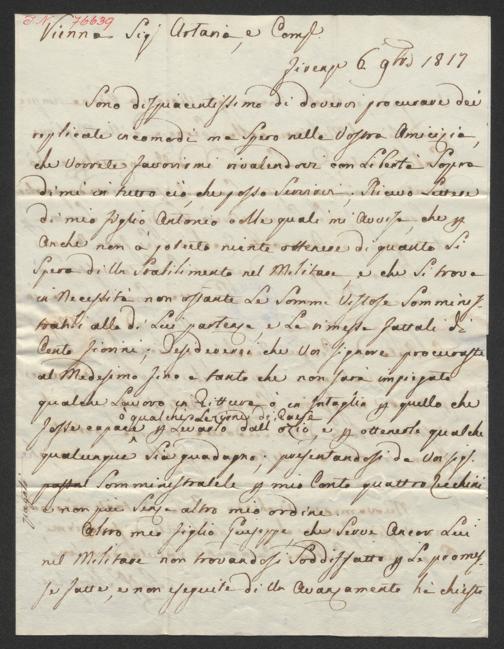 J.N. 76639
Vienna Sigri Artaria, e Comp.
Firenze 6 9bre 1817
Sono dispiacentissimo di dovervi procurare dei
replicati incomodi ma Spero nella Vostra Amicizia,
che vorrete favorirmi rivalendovi con Libertà Sopra
di me in tutto ciò, che posso Servirvi; Ricevo Lettere
di mio figlio Antonio colle quali mi Avvisa, che p
Anche non à potuto niente ottenere di quanto Si
Spera di Un Stabilimento nel Militare, e che Si trova
in Necessità non ostante Le Somme Vistose Sommini=
strateli alla di Lui partenza e Le rimesse fattali di
Cento fiorini; Desidererei che Voi Signori procuraste
al Medesimo fino a tanto che non sarà impiegato
qualche Lavoro in Pittura, ò in Intaglio p quello che
ò qualche Lezione di Paese
fosse capace p Levarlo dall'ozio, e p ottenerle qualche
qualunque Sia guadagno; presentandosi da Voi pgl
Somministratele p mio Conto quattro Zecchini
e non più Senza altro mio ordine
Altro mio figlio Giuseppe, che Serve Ancor Lui
nel Militare non trovandosi Soddisfatto p Le promes=
se fatte, e non eseguite di Un Avanzamento hà chiesto